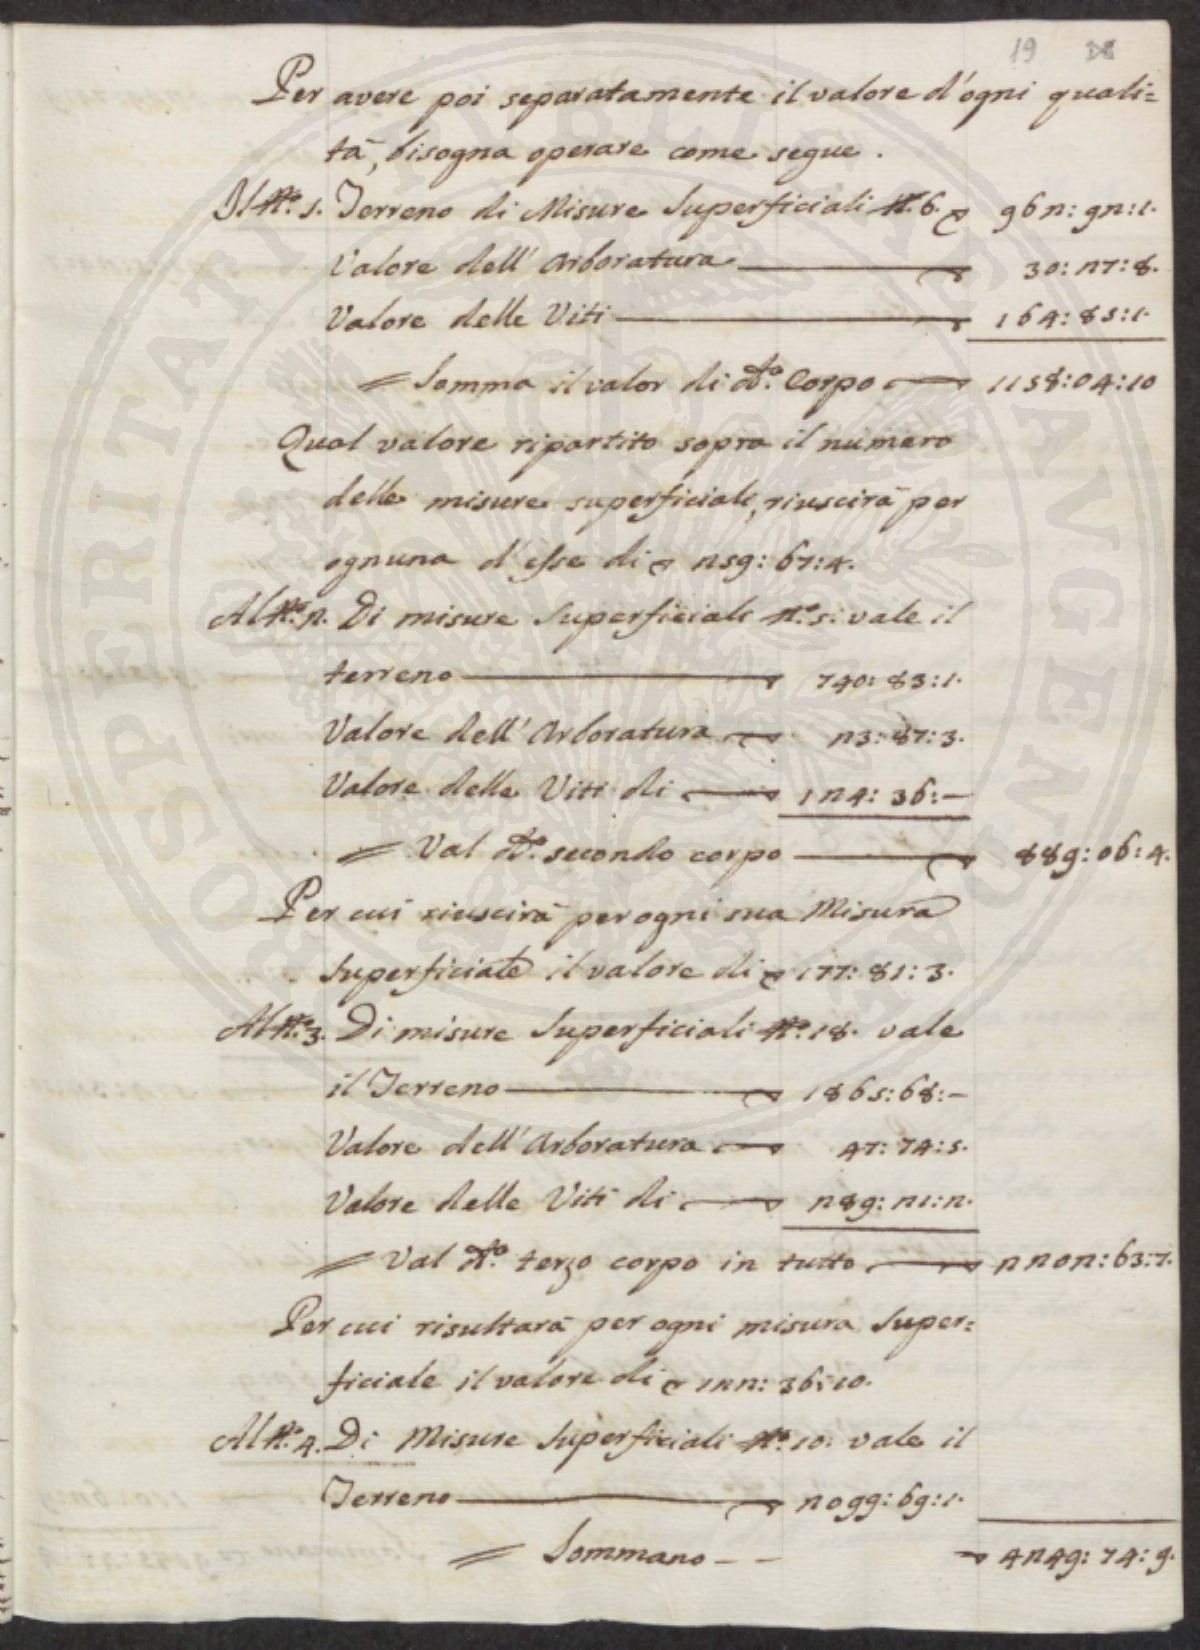 19
Per avere poi separatamente il valore d'ogni quali=
tà, bisogna operare come segue.
Al N.º 1. Terreno di Misure Superficiali N.º 6. 962: 92: 1.
Valore dell' Arboratura 30: 27: 8.
Valore delle Viti 164: 85: 1.
= Somma il valor di d.º Corpo 1158: 04: 10
Qual valore ripartito sopra il numero
delle misure superficiali, riuscirà per
ognuna d'esse di 259: 67: 4.
Al N.º 2. Di misure Superficiali N.º 5: vale il
terreno 740: 83: 1.
Valore dell' Arboratura 23: 87: 3.
Valore delle Viti di 124: 36: —
= Val d.º secondo corpo 889: 06: 4.
Per cui riuscirà per ogni sua Misura
Superficiale il valore di 177: 81: 3.
Al N.º 3. Di misure Superficiali N.º 18. vale
il Terreno 1865: 68: —
Valore dell' Arboratura 47: 74: 5.
Valore delle Viti di 289: 21: 2.
= Val d.º terzo corpo in tutto 2202: 63: 7.
Per cui risultarà per ogni misura Super=
ficiale il valore di 122: 36: 10.
Al N.º 4. Di Misure Superficiali N.º 10: vale il
Terreno 2099: 69: 1.
= Sommano — — 4249: 74: 9.
PROSPERITATI PVBLICAE AVGENDAE